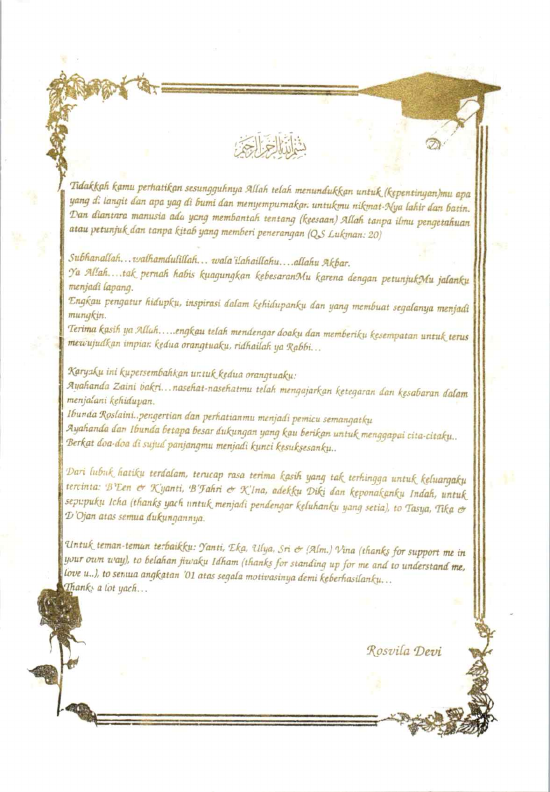 بسم الله الرحمن الرحيم
Tidakkah kamu perhatikan sesungguhnya Allah telah menundukkan untuk (kepentingan)mu apa
yang di langit dan apa yag di bumi dan menyempurnakar. untukmu nikmat-Nya lahir dan batin.
Dan diantara manusia ada yang membantah tentang (keesaan) Allah tanpa ilmu pengetahuan
atau petunjuk dan tanpa kitab yang memberi penerangan (Q.S Lukman: 20)
Subhanallah...walhamdulillah... wala'ilahaillahu....allahu Akbar.
Ya Allah....tak pernah habis kuagungkan kebesaranMu karena dengan petunjukMu jalanku
menjadi lapang.
Engkau pengatur hidupku, inspirasi dalam kehidupanku dan yang membuat segalanya menjadi
mungkin.
Terima kasih ya Alluh.....engkau telah mendengar doaku dan memberiku kesempatan untuk terus
mewujudkan impiar. kedua orangtuaku, ridhailah ya Rabbi...
Karyaku ini kupersembahkan untuk kedua orangtuaku:
Ayahanda Zaini bakri...nasehat-nasehatmu telah mengajarkan ketegaran dan kesabaran dalam
menjalani kehidupan.
Ibunda Roslaini..pengertian dan perhatianmu menjadi pemicu semangatku
Ayahanda dan Ibunda betapa besar dukungan yang kau berikan untuk menggapai cita-citaku..
Berkat doa-doa di sujud panjangmu menjadi kunci kesuksesanku..
Dari lubuk hatiku terdalam, terucap rasa terima kasih yang tak terhingga untuk keluargaku
tercinta: B'Een & K'yanti, B'Fahri & K'Ina, adekku Diki dan keponakanku Indah, untuk
sepupuku Icha (thanks yach untuk menjadi pendengar keluhanku yang setia), to Tasya, Tika &
D'Ojan atas semua dukungannya.
Untuk teman-teman terbaikku: Yanti, Eka, Ulya, Sri & (Alm.) Vina (thanks for support me in
your own way), to belahan jiwaku Idham (thanks for standing up for me and to understand me,
love u..), to semua angkatan '01 atas segala motivasinya demi keberhasilanku...
Thanks a lot yach...
Rosvila Devi